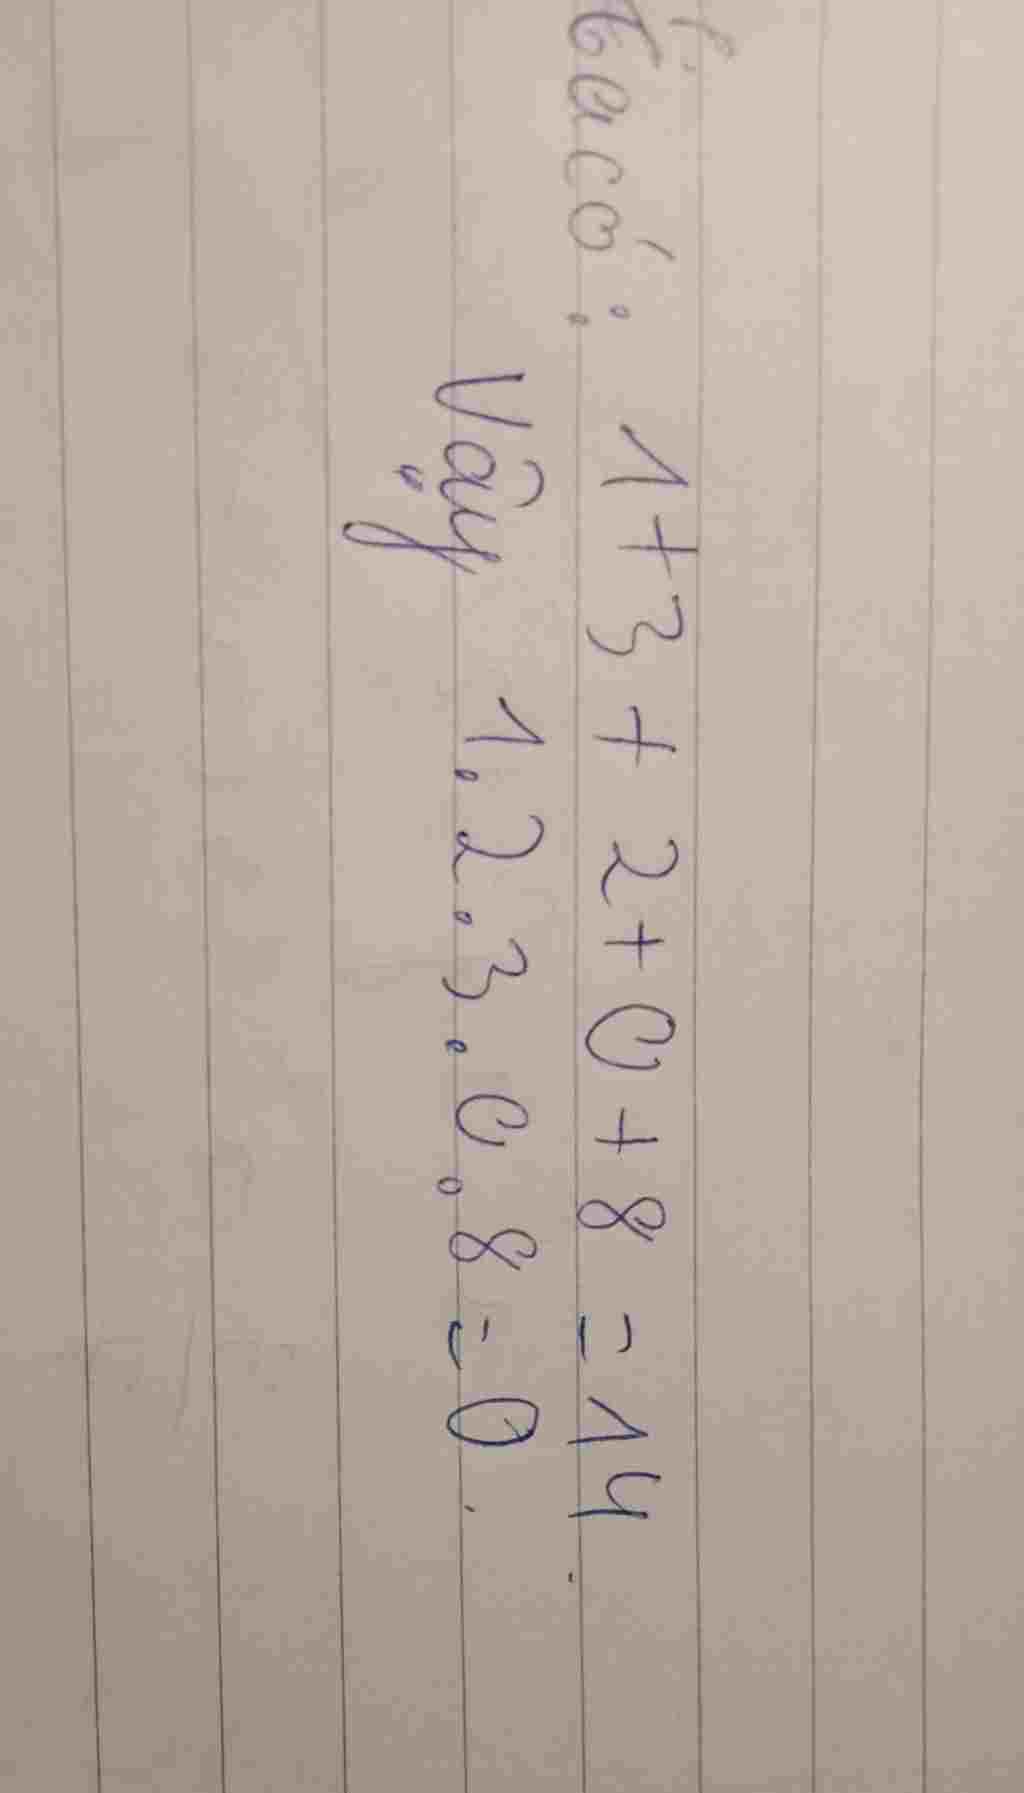 ta có : 1 + 3 + 2 + 0 + 8 = 14
Vậy 1.2.3.0.8 = 0